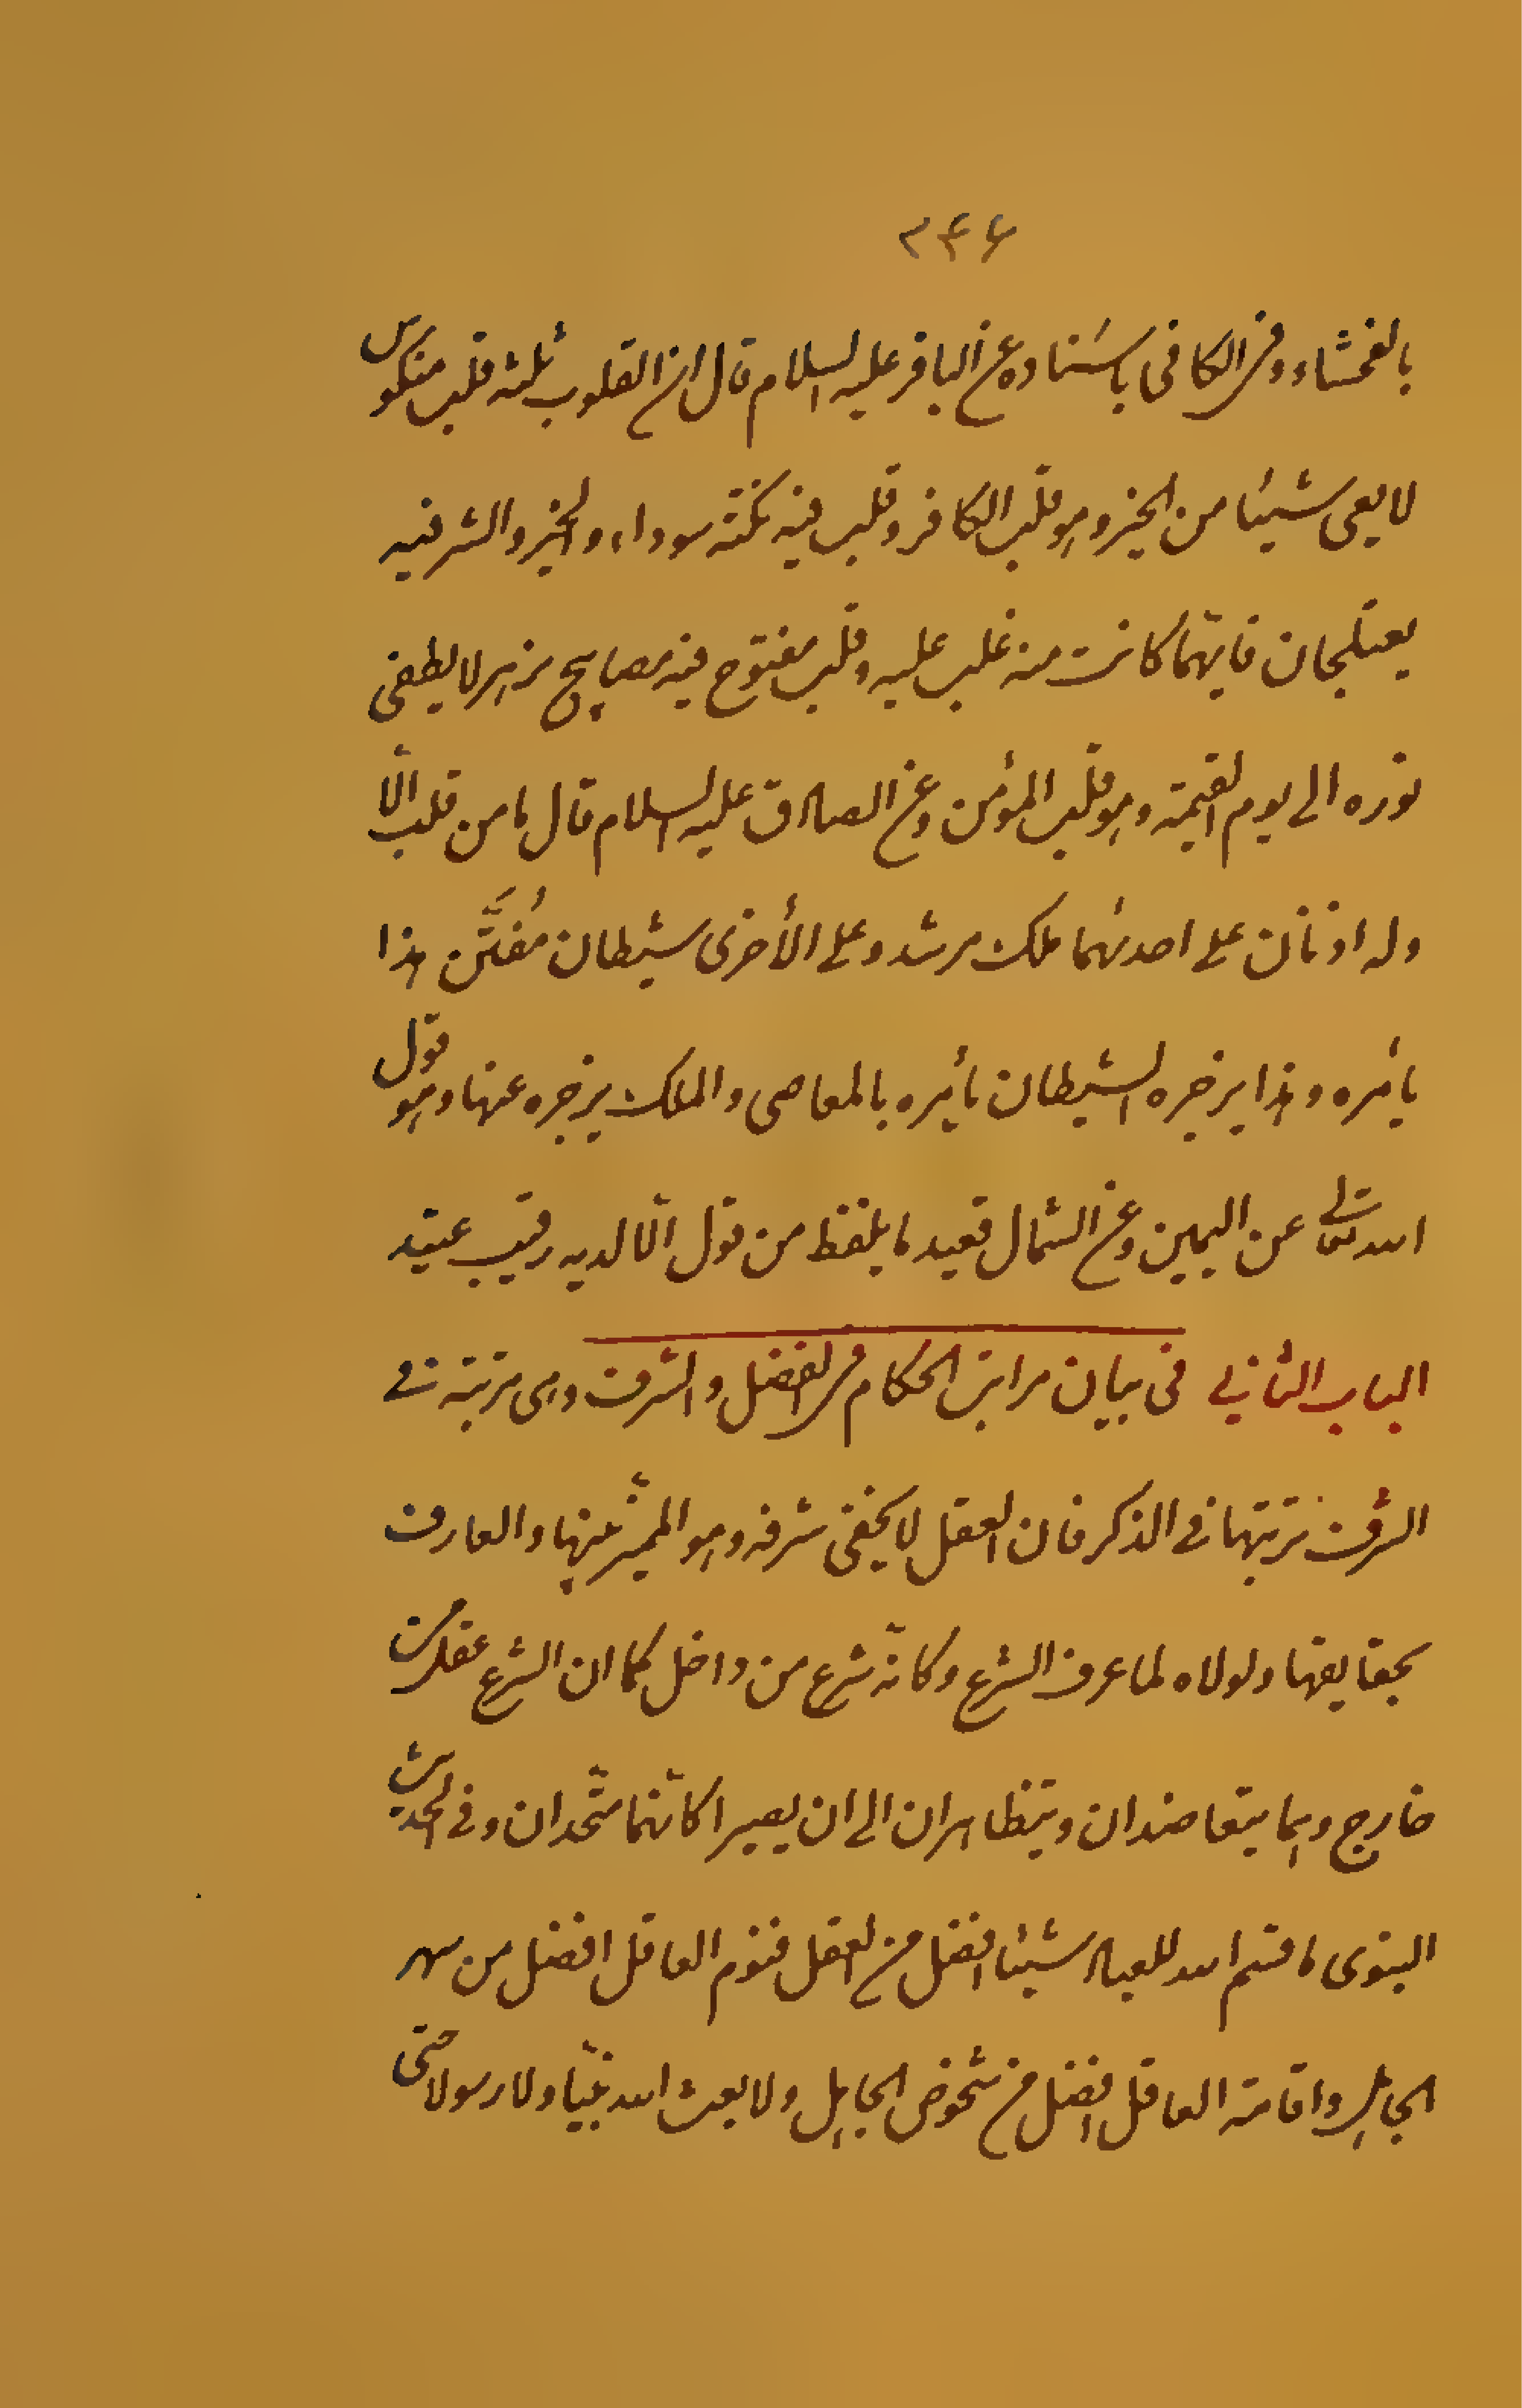 ۳۴۶
بالفحشاء وفی الکافی باسناده عن الباقر علیه السلام قال ان القلوب ثلثه قلب منکوس
لا یعی شیئا من الخیر وهو قلب الکافر وقلب فیه نکتة سوداء والخیر والشر فیه
یعتلجان فایّهما کانت منه غلب علیه وقلب مفتوح فیه مصابیح یزهر لا یطفی
نوره الی یوم القیمة وهو قلب المؤمن وعن الصادق علیه السلام قال ما من قلب الّا
وله اذنان علی احدیهما ملک مرشد وعلی الأخری شیطان مُفتَّن هذا
یأمره وهذا یزجره الشیطان یأمره بالمعاصی والملک یزجره عنها وهو قول
الله تعالی عن الیمین وعن الشمال قعید ما یلفظ من قول الّا لدیه رقیب عتید
الباب الثانی فی بیان مراتب الحکام فی الفضل والشرف وهی مرتبة فی
الشرف ترتبها فی الذکر فان العقل لا یخفی شرفه وهو الممیّز بینها والعارف
بحقایقها ولولاه لما عرف الشرع وکانّه شرع من داخل کما ان الشرع عقل من
خارج وهما یتعاضدان ویتظاهران الی ان یصیرا کانّهما متّحدان وفی الحدیث
النبوی ما قسم الله للعباد شیئا افضل من العقل فنوم العاقل افضل من سهر
الجاهل واقامة العاقل افضل من شخوص الجاهل ولا بعث الله نبیّا ولا رسولا حتی